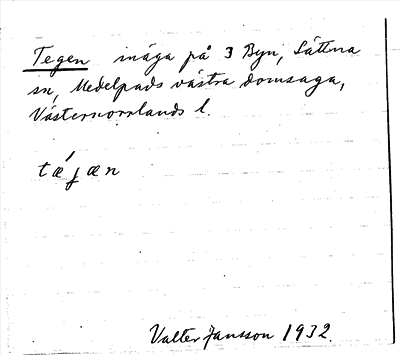 Tegen inäga på 3 Byn, Sättna
sn, Medelpads västra domsaga,
Västernorrlands l.
tǽjæn
Valter Jansson 1932.